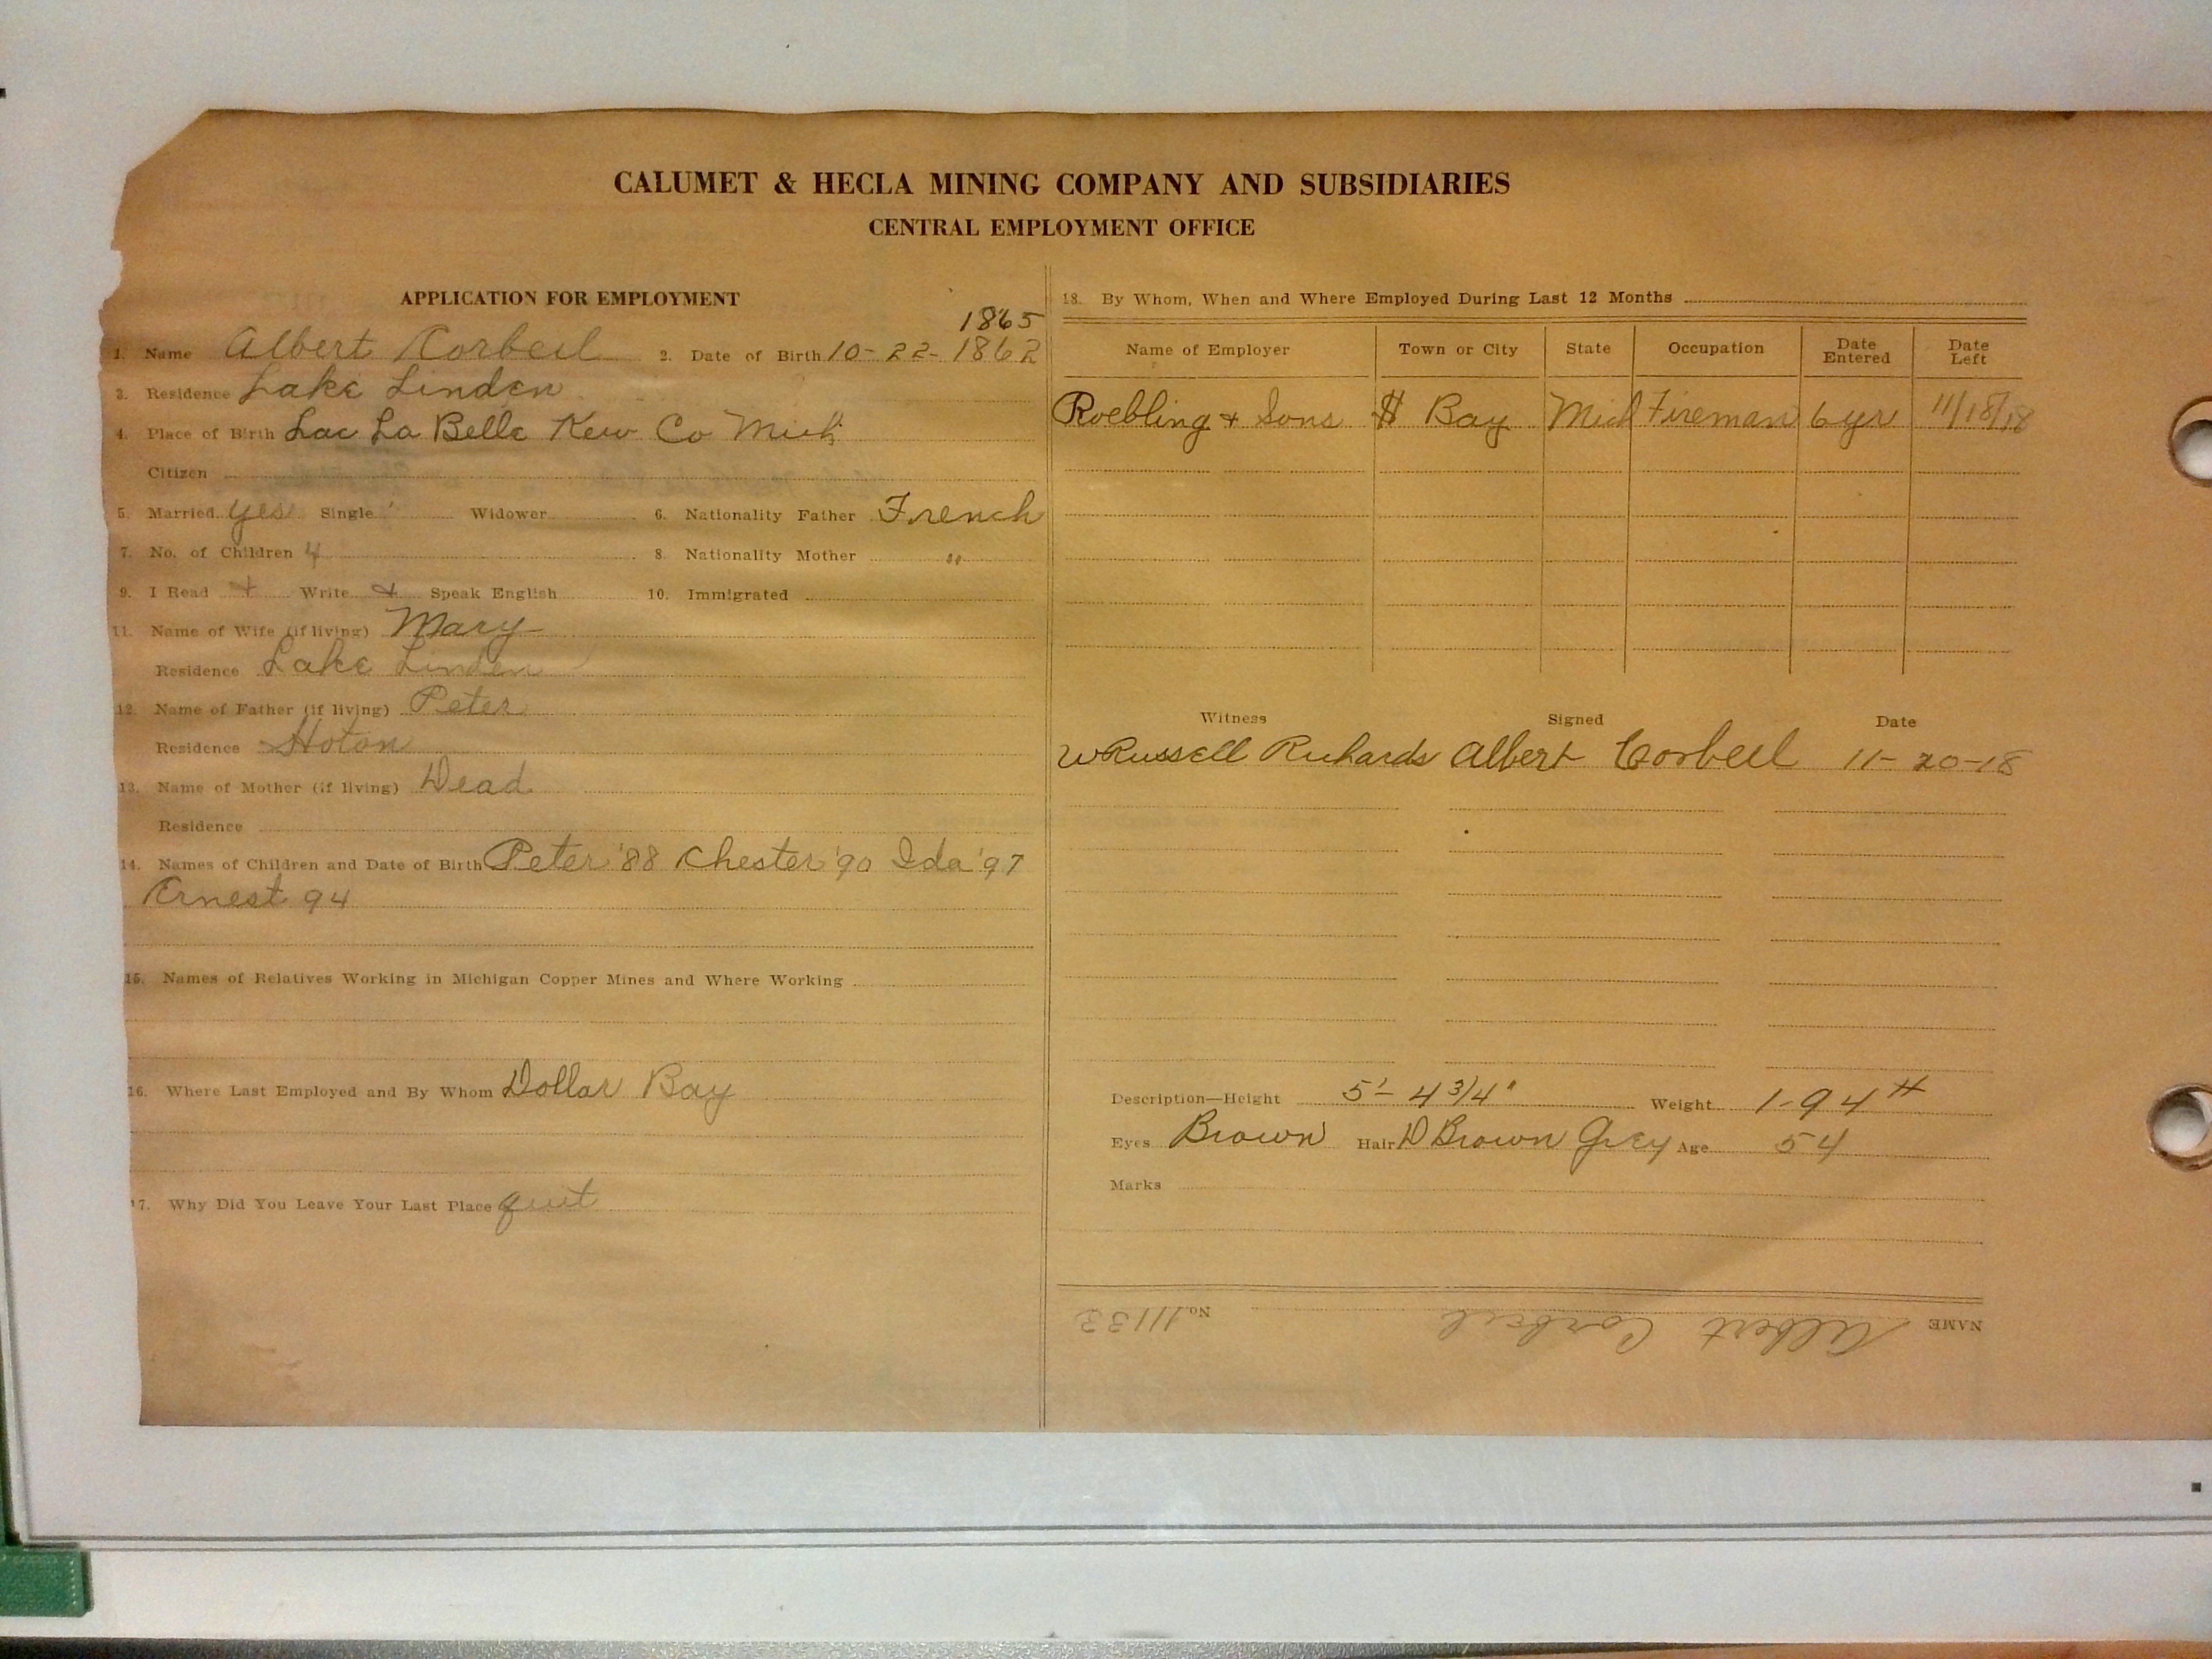 CALUMET & HECLA MINING COMPANY AND SUBSIDIARIES
CENTRAL EMPLOYMENT OFFICE
APPLICATION FOR EMPLOYMENT
1865
1. Name Albert Corbeil 2. Date of Birth 10-22-1862
3. Residence Lake Linden
4. Place of Birth Lac La Belle Kew Co Mich
Citizen
5. Married yes Single Widower 6. Nationality Father French
7. No. of Children 4 8. Nationality Mother "
9. I Read + Write + Speak English 10. Immigrated
11. Name of Wife (if living) Mary
Residence Lake Linden
12. Name of Father (if living) Peter
Residence Hoton
13. Name of Mother (if living) Dead
Residence
14. Names of Children and Date of Birth Peter '88 Chester '90 Ida '97
Ernest 94
15. Names of Relatives Working in Michigan Copper Mines and Where Working
16. Where Last Employed and By Whom Dollar Bay
17. Why Did You Leave Your Last Place quit
18. By Whom, When and Where Employed During Last 12 Months
Name of Employer Town or City State Occupation Date Entered Date Left
Roebling + Sons $ Bay Mich Fireman 6yr 11/18/18
Witness Signed Date
W Russell Richards Albert Corbeil 11-20-18
Description—Height 5'- 4 3/4" Weight 1-94 #
Eyes Brown Hair D Brown Grey Age 54
Marks
NAME Albert Corbeil No. 11133